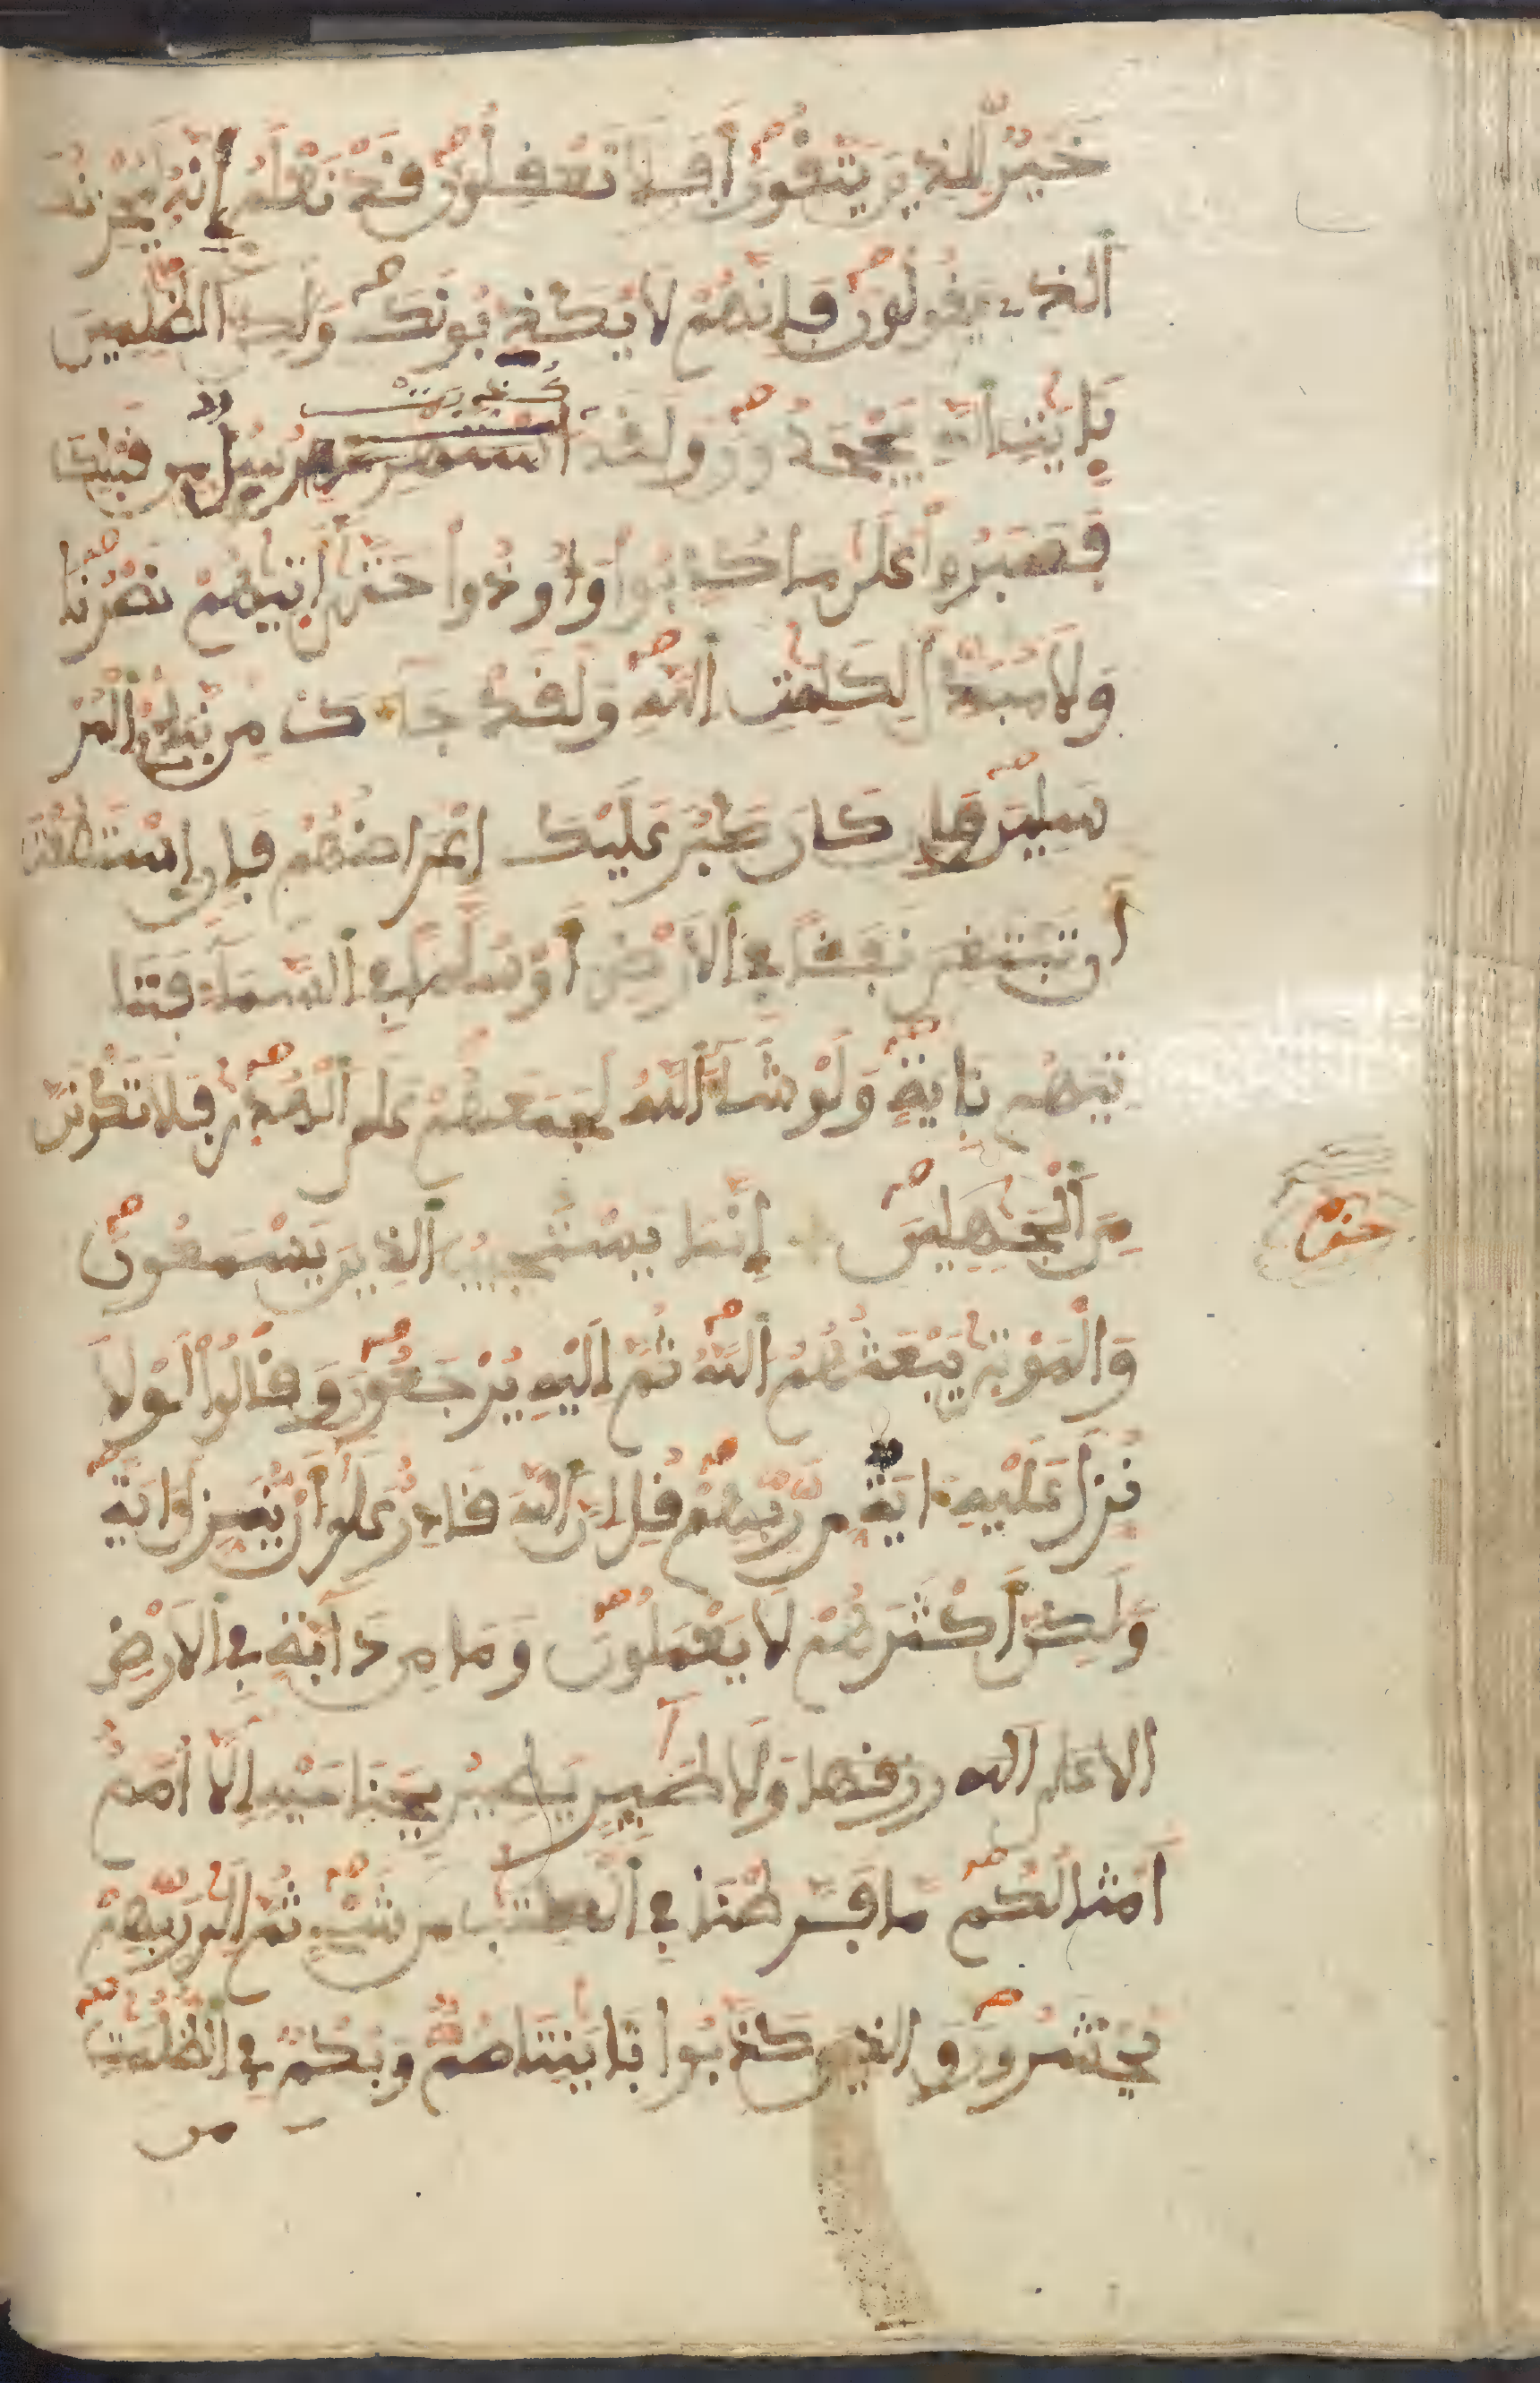 خَيْرٌ لِّلذِينَ يَتَّفُونَ أَفَلَا تَعْفِلُونَ فَدْ نَعْلَمُ إِنَّهُ لَيُحْزِنُكَ
ألذِى يَفُولُونَ فَإِنَّهُمْ لَا يُكْذِبُونَكَ وَلَكِنَّ ألظَّلِمِينَ
بِـَٔايَتِ أللَّهِ يَجْحَدُونَ وَلَفَدْ
كُذِّبَتْ
رُسُلٌ مِّن فَبْلِكَ
فَصَبَرُواْ عَلَى مَا كُذِّبُواْ وَأُوذُواْ حَتَّى أَتَيهُمْ نَصْرُنَا
وَلَا مُبَدِّلَ لِكَلِمَتِ أللَّهِ وَلَفَدْ جَآءَكَ مِن نَّبَإِىْ ألْمُرْ
سَلِينَ وَإِن كَانَ كَبُرَ عَلَيْكَ إِعْرَاضُهُمْ فَإِنِ إسْتَطَعْتَ
أَن تَبْتَغِىَ نَفَفاً فِى ألَارْضِ أَوْ سُلَّماً فِى ألسَّمَآءِ فَتَا
تِيَهُم بِـَٔايَةٍ وَلَوْ شَآءَ أللَّهُ لَجَمَعَهُمْ عَلَى ألْهُدَى فَلَا تَكُونَنَّ
مِنَ ألْجَهِلِينَ إِنَّمَا يَسْتَجِيبُ ألذِينَ يَسْمَعُونَ
حزب
وَالْمَوْتَى يَبْعَثُهُمُ أللَّهُ ثُمَّ إِلَيْهِ يُرْجَعُونَ وَفَالُواْ لَوْلَا
نُزِّلَ عَلَيْهِ ءَايَةٌ مِّن رَّبِّهِمْ فُلِ انَّ أللَّهَ فَادِرٌ عَلَى أَنْ يُّنَزِّلَ ءَايَةً
وَلَكِنَّ أَكْثَرَهُمْ لَا يَعْمَلُونَ وَمَا مِن دَآبَّةٍ فِى ألَارْضِ
الا على الله رزفها وَلَا طَٓئِرٍ يَطِيرُ بِجَنَاحَيْهِ إِلَّا أُمَمٌ
أَمْثَالُكُم مَّا فَرَّطْنَا فِى ألْكِتَبِ مِن شَىْءٍ ثُمَّ إِلَى رَبِّهِمْ
يُحْشَرُونَ وَالذِينَ كَذَّبُواْ بِـَٔايَتِنَا صُمٌّ وَبُكْمٌ فِى ألظُّلُمَتِ
من